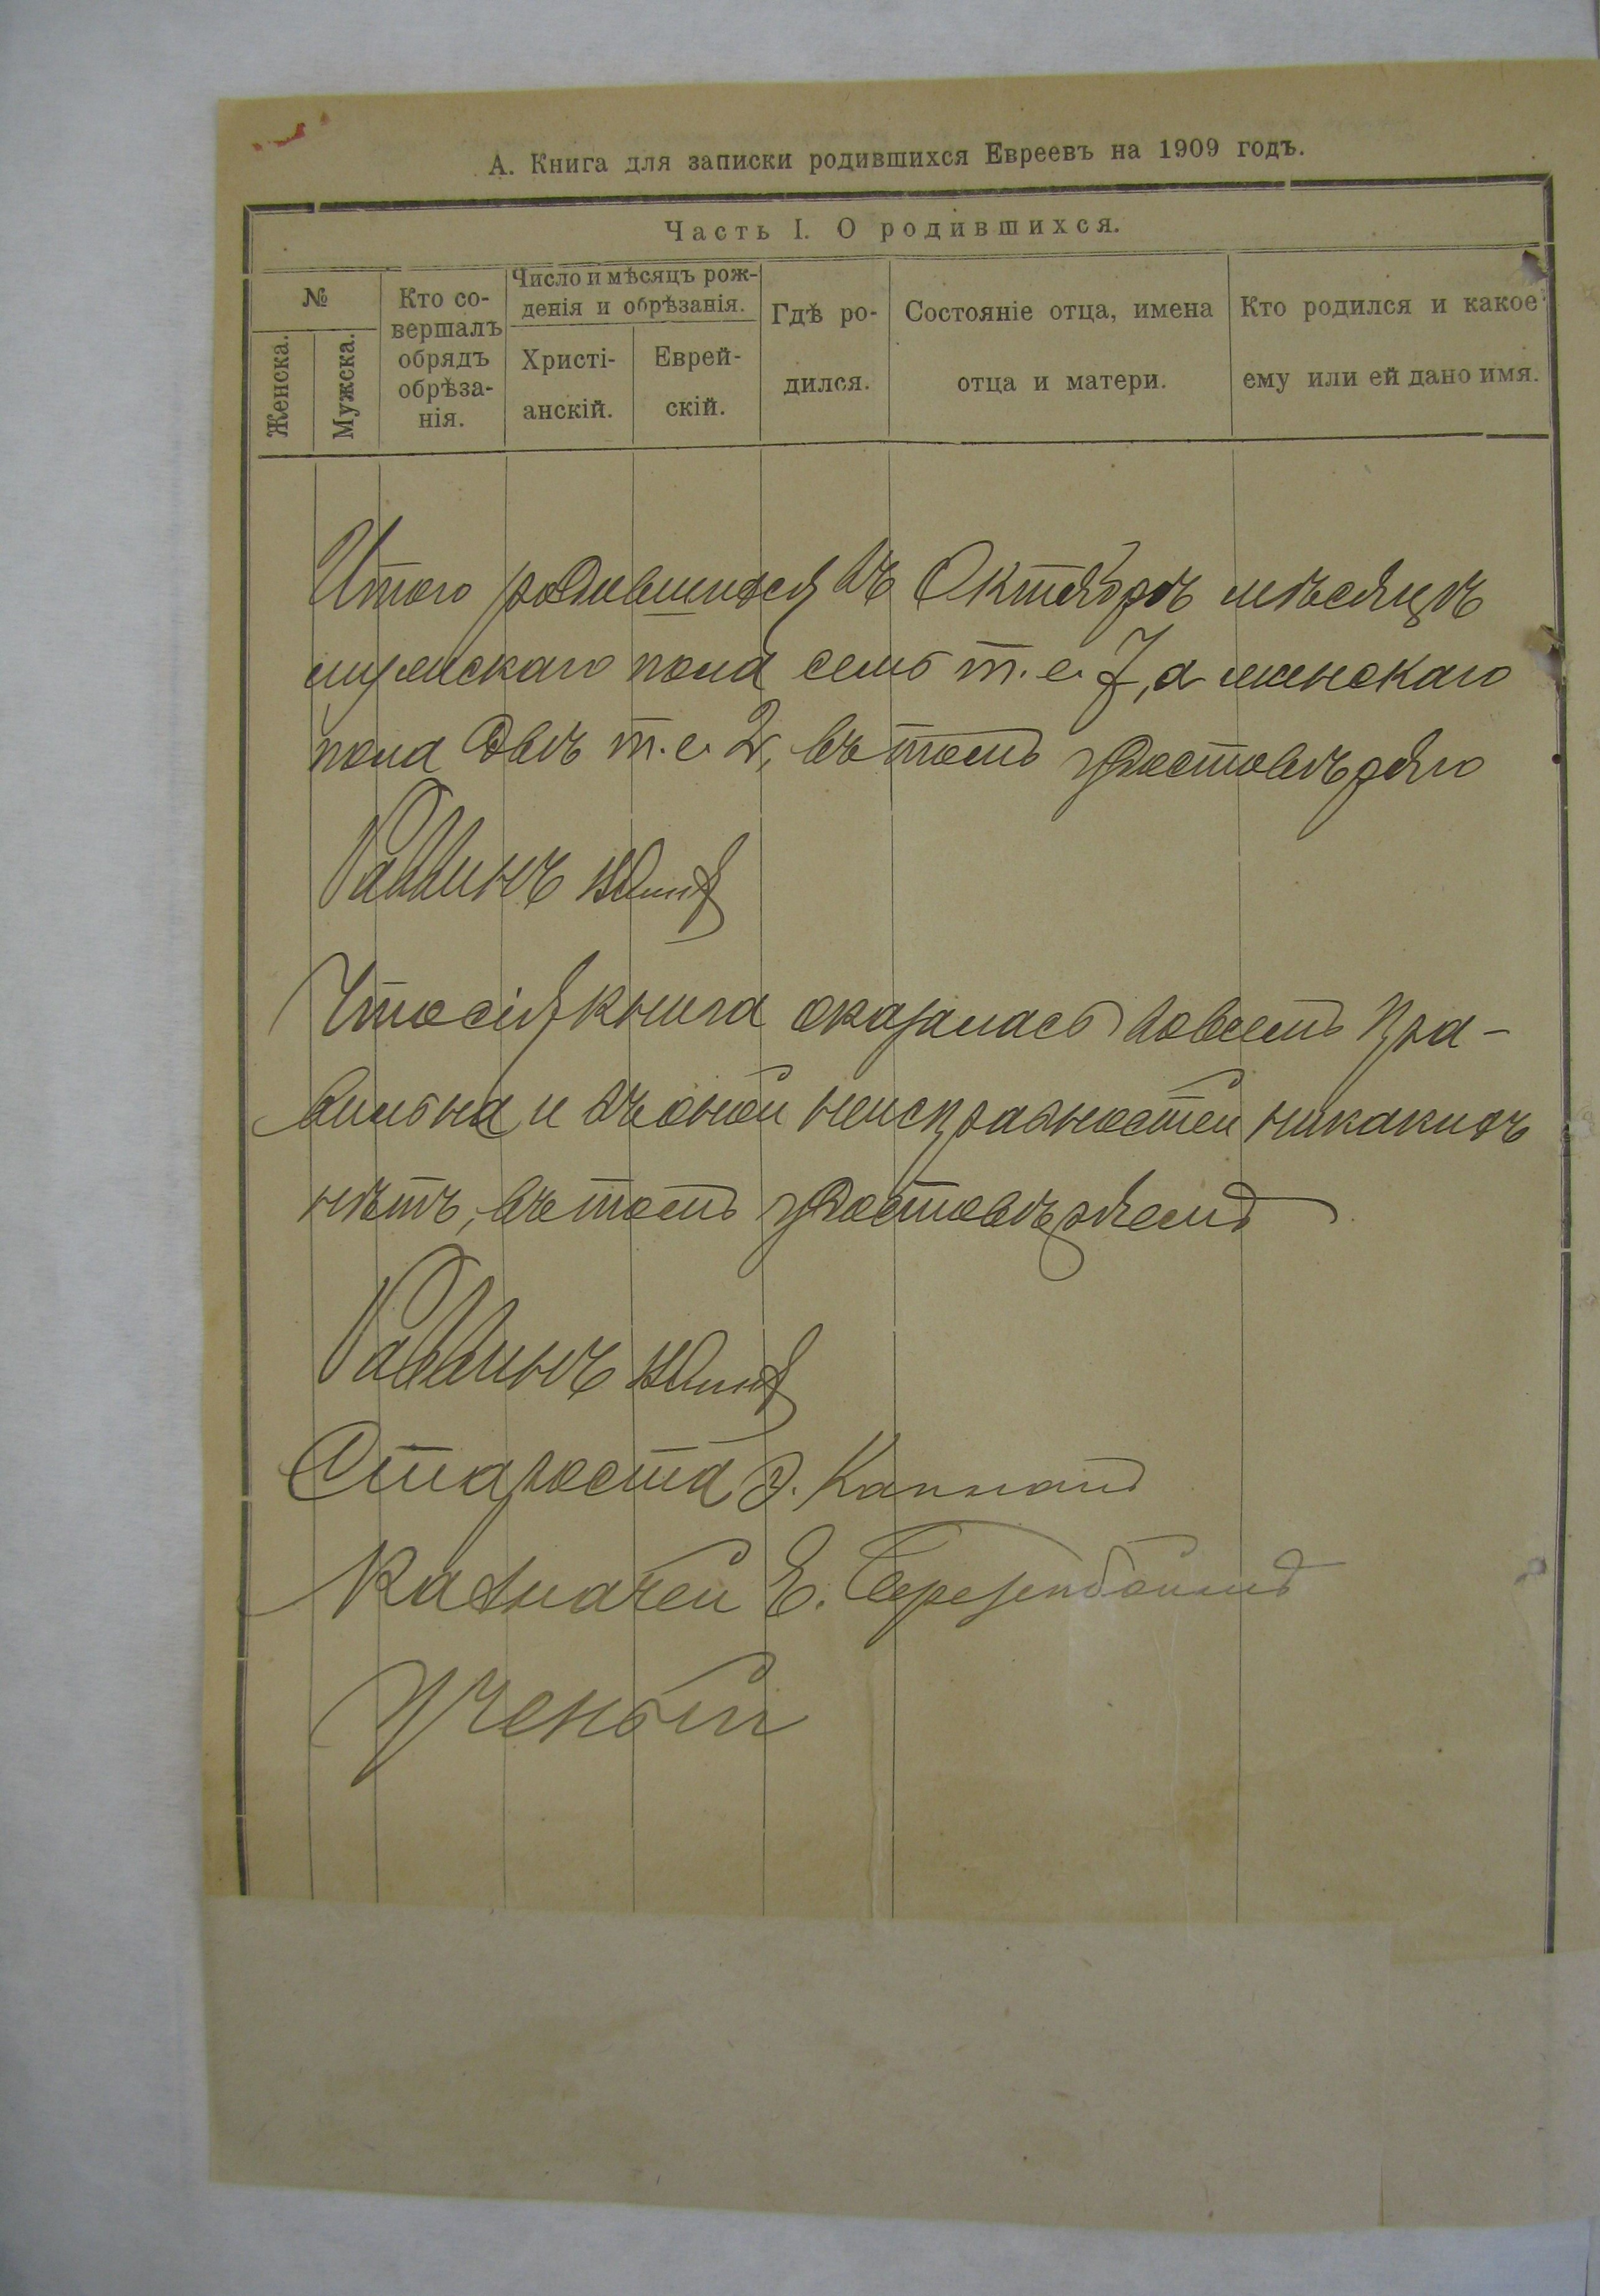 А. Книга для записки родившихся Евреевъ на 1909 годъ.
Часть I. О родившихся.
№
Женска.
Мужска.
Кто со-
вершалъ
обрядъ
обрѣза-
нія.
Число и мѣсяцъ рож-
денія и обрѣзанія.
Христі-
анскій.
Еврей-
скій.
Гдѣ ро-
дился.
Состояніе отца, имена
отца и матери.
Кто родился и какое
ему или ей дано имя.
Итого родившихся въ Октябрѣ мѣсяцѣ
мужскаго пола семь т. е. 7, а женскаго
пола двѣ т. е. 2, въ томъ удостовѣряю
Раввинъ
Что сія книга оказалась совсемъ пра-
вильна и въ оной неисправностей никакихъ
нѣтъ, въ томъ удостовѣряемъ
Раввинъ
Староста Э. Капланъ
Казначей Е.
Ученый